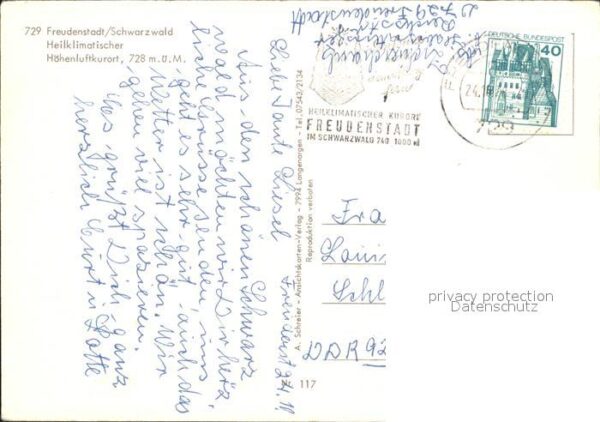 729 Freudenstadt/Schwarzwald
Heilklimatischer
Höhenluftkurort, 728 m.ü.M.
Freudenst 24.11.
Liebe Tante Liesel
Aus den schönen Schwarz
wald möchten wir Dir herz
liche Grüsse senden, uns
geht es sehr gut auch das
Wetter ist schön. Wir
gehen viel spazieren.
Es grüßt Dich ganz
herzlich Curt u. Lotte
A. Schreier - Ansichtskarten-Verlag - 7994 Langenargen - Tel. 07543/2134
Reproduktion verboten
729 Freudenstadt
HEILKLIMATISCHER KURORT
FREUDENSTADT
IM SCHWARZWALD 740 1000 m
24.11
729
DEUTSCHE BUNDESPOST
40
Fra
Loui
Schl
DDR 92
117
privacy protection
Datenschutz